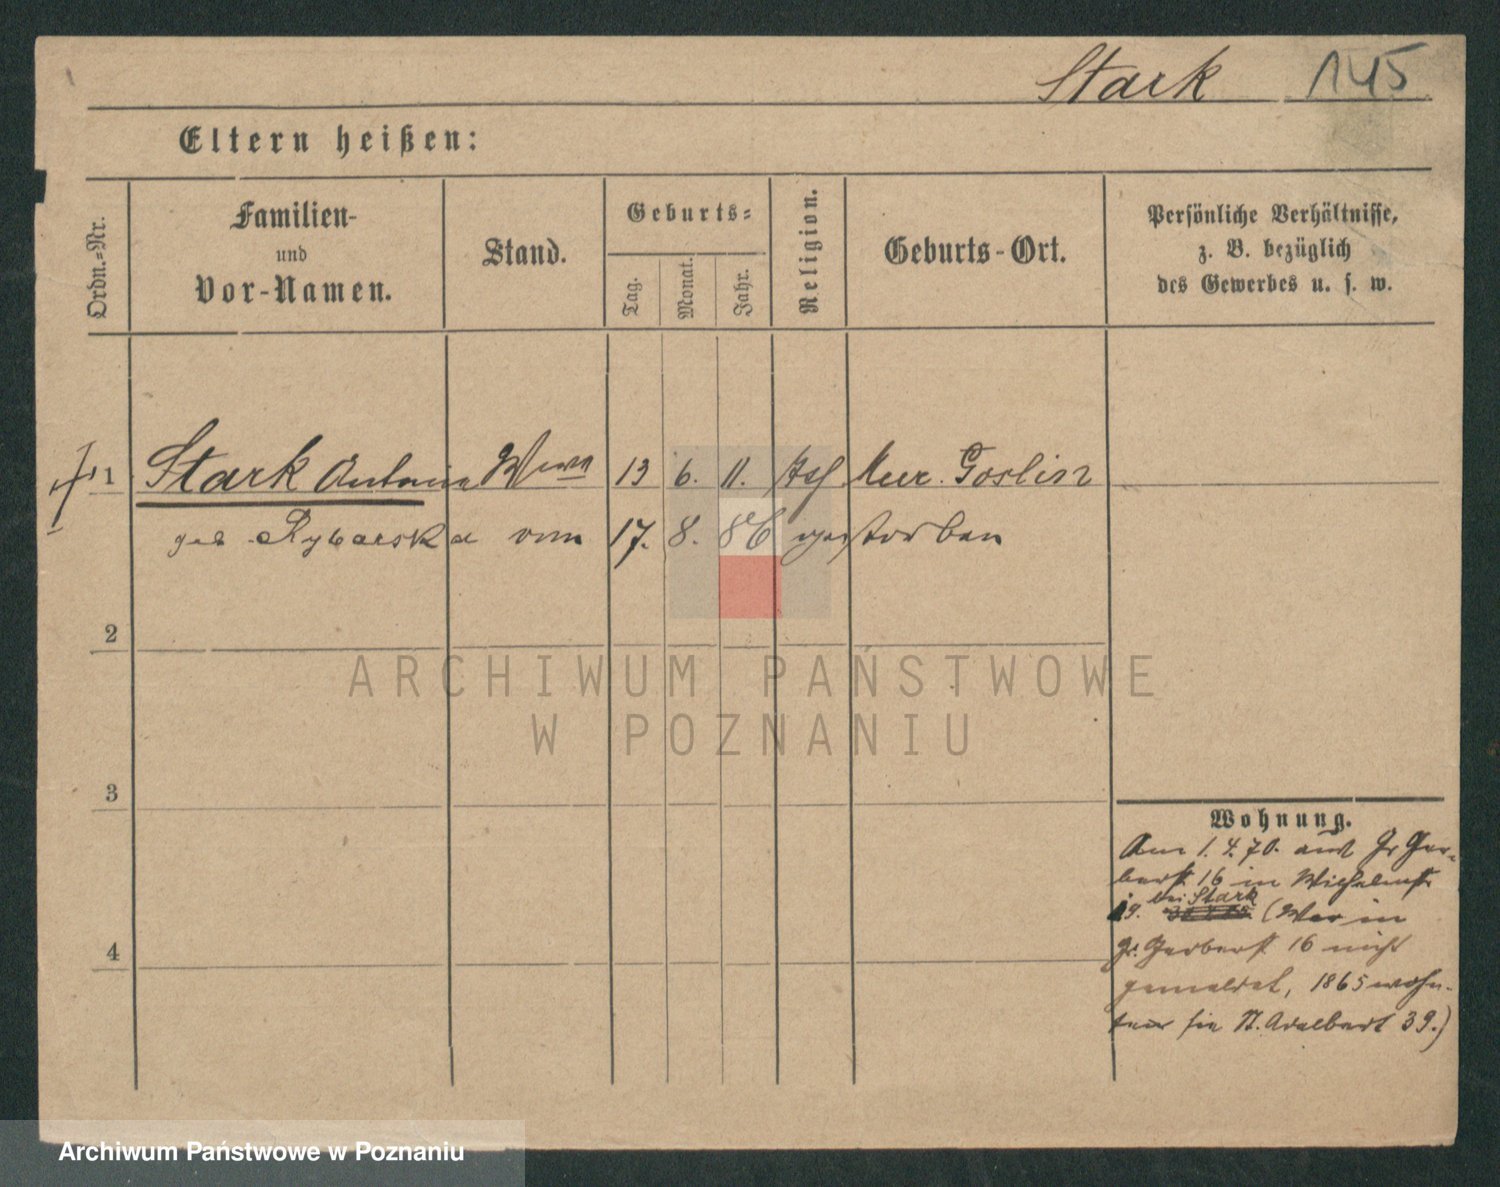 Stark 145
Eltern heißen:
Ordn.-Nr.
Familien-
und
Vor-Namen.
Stand.
Geburts-
Tag.
Monat.
Jahr.
Religion.
Geburts-Ort.
Persönliche Verhältnisse,
z. B. bezüglich
des Gewerbes u. s. w.
1 Stark Antonia Wwe 13 6. 11. kth Mur. Goslin
geb Rybarska vom 17. 8. 86 gestorben
2
ARCHIWUM PAŃSTWOWE
W POZNANIU
3
Wohnung.
Am 1. 4. 70. aus Gr Ger-
berst 16 in Wilhelmstr
bei Stark
19. (War in
gr. Gerberst 16 nicht
gemeldet, 1865 wohn-
te sie St. Adalbert 39.)
4
Archiwum Państwowe w Poznaniu